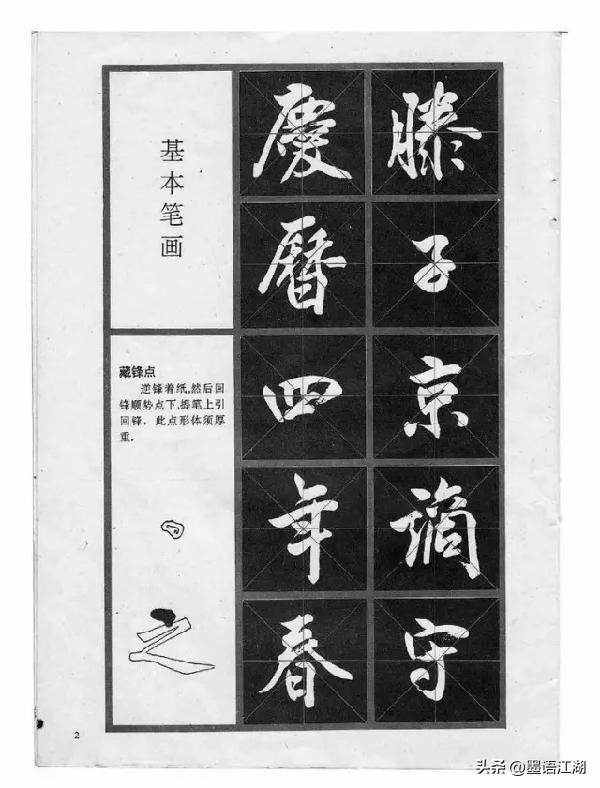 滕子京謫守
慶曆四年春
基本笔画
藏锋点
逆锋着纸,然后回
锋顺势点下,笔上引
回锋.此点形体须厚
重.
之
2
头条 @墨语江湖